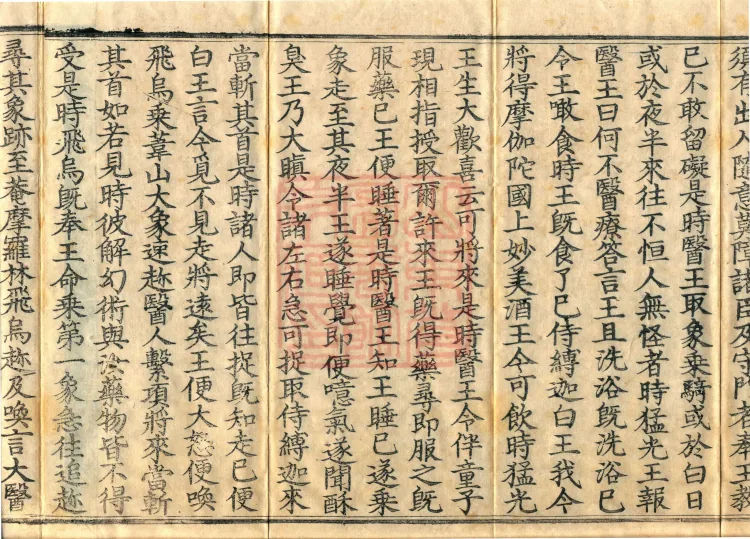 須有出入隨意莫障諸臣及守門者奉王教
已不敢留礙是時醫王取象乘騎或於白日
或於夜半來往不恒人無怪者時猛光王報
醫王曰何不醫療答言王且洗浴既洗浴已
令王噉食時王既食了已侍縛迦白王我今
將得摩伽陀國上妙美酒王今可飲時猛光
王生大歡喜云可將來是時醫王令伴童子
現相指授取爾許來王既得藥尋即服之既
服藥已王便睡著是時醫王知王睡已遂乘
象走至其夜半王遂睡覺即便噫氣遂聞酥
臭王乃大瞋令諸左右急可捉取侍縛迦來
當斬其首是時諸人即皆往捉既知走已便
白王言今覓不見走將遠矣王便大怒便喚
飛烏乘葦山大象速趂醫人繫項將來當斬
其首如若見時彼解幻術與汝藥物皆不得
受是時飛烏既奉王命乘第一象急往追趂
尋其象跡至菴摩羅林飛烏趂及喚言大醫